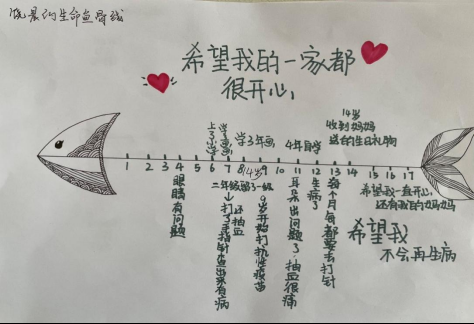 晓晨的生命鱼骨线
希望我的一家都
很开心
上了小学
学画画
学3年画
4年自学
14岁
收到妈妈
送的生日礼物
1 2 3 4 5 6 7 8 9 10 11 12 13 14 15 16 17
眼睛有问题
二年级留了一级
打了手指针查出来有病
还抽血
9岁开始打抗性疫苗
耳朵出问题了，抽血很痛
生病了
每个月每都要去打针
希望我一直开心，
还有我的妈妈
希望我
不会再生病